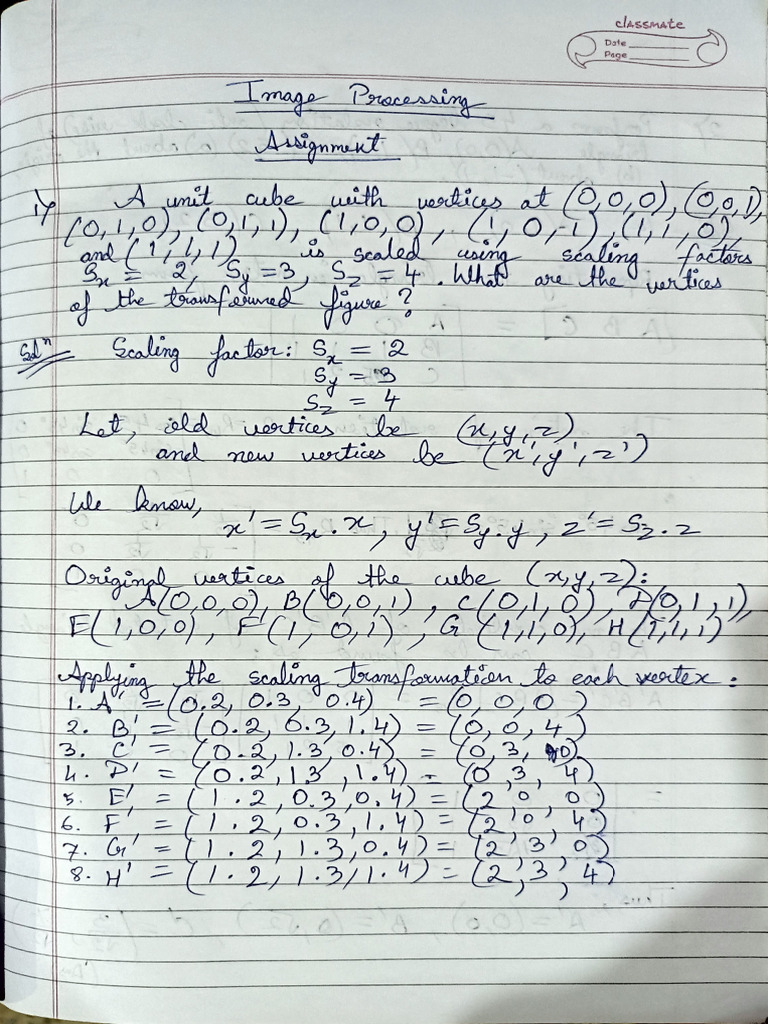 classmate
Date
Page
Image Processing
Assignment
1) A unit cube with vertices at (0,0,0), (0,0,1),
(0,1,0), (0,1,1), (1,0,0), (1,0,1), (1,1,0),
and (1,1,1) is scaled using scaling factors
Sx = 2, Sy = 3, Sz = 4. What are the vertices
of the transformed figure?
Solⁿ Scaling factor: Sx = 2
Sy = 3
Sz = 4
Let, old vertices be (x,y,z)
and new vertices be (x',y',z')
We know,
x' = Sx.x, y' = Sy.y, z' = Sz.z
Original vertices of the cube (x,y,z):
A(0,0,0), B(0,0,1), C(0,1,0), D(0,1,1),
E(1,0,0), F(1,0,1), G(1,1,0), H(1,1,1)
Applying the scaling transformation to each vertex:
1. A' = (0.2, 0.3, 0.4) = (0, 0, 0)
2. B' = (0.2, 0.3, 1.4) = (0, 0, 4)
3. C' = (0.2, 1.3, 0.4) = (0, 3, 0)
4. D' = (0.2, 1.3, 1.4) = (0, 3, 4)
5. E' = (1.2, 0.3, 0.4) = (2, 0, 0)
6. F' = (1.2, 0.3, 1.4) = (2, 0, 4)
7. G' = (1.2, 1.3, 0.4) = (2, 3, 0)
8. H' = (1.2, 1.3, 1.4) = (2, 3, 4)